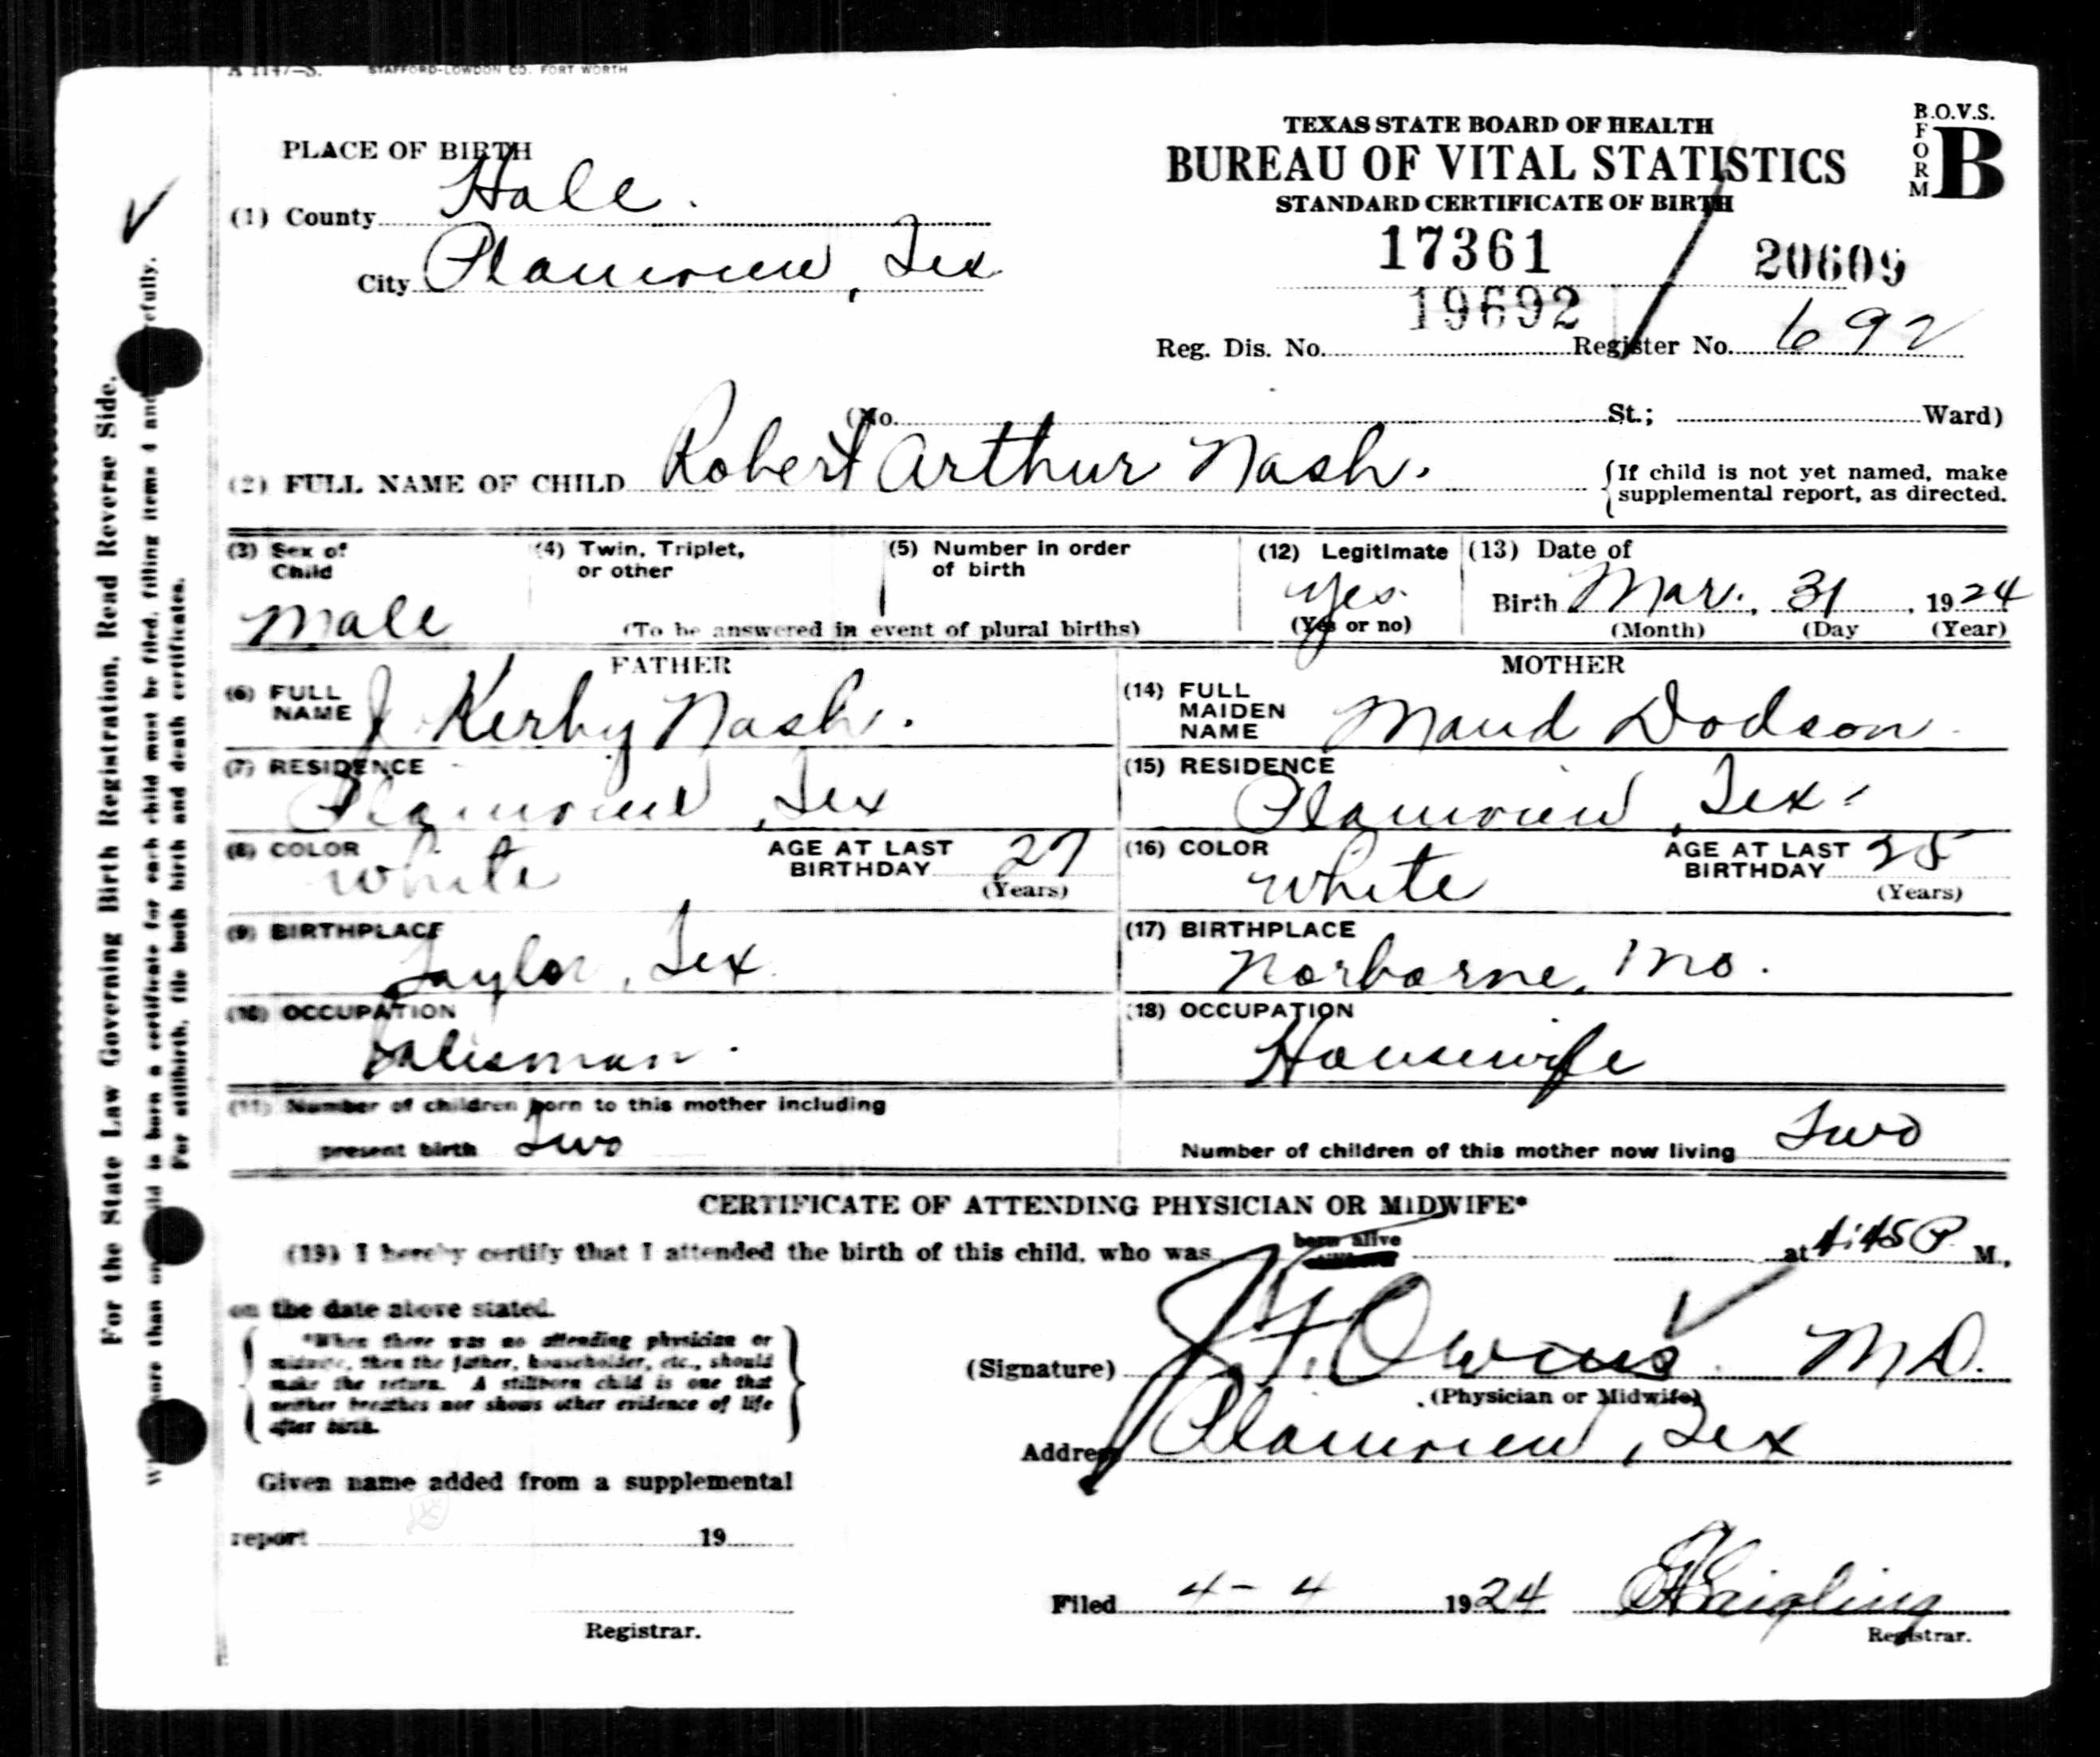 A 1147-S. STAFFORD-LOWDON CO. FORT WORTH
B.O.V.S.
FORM B
TEXAS STATE BOARD OF HEALTH
BUREAU OF VITAL STATISTICS
STANDARD CERTIFICATE OF BIRTH
PLACE OF BIRTH
(1) County Hale.
City Plainview, Tex
17361
20609
19692
Reg. Dis. No. Register No. 692
(No. St.; Ward)
(2) FULL NAME OF CHILD Robert Arthur Nash.
{If child is not yet named, make
supplemental report, as directed.
(3) Sex of Child Male
(4) Twin, Triplet, or other
(5) Number in order of birth
(To be answered in event of plural births)
(12) Legitimate Yes. (Yes or no)
(13) Date of Birth Mar. 31, 1924
(Month) (Day (Year)
FATHER
(6) FULL NAME J Kerby Nash.
(7) RESIDENCE Plainview, Tex
(8) COLOR White AGE AT LAST BIRTHDAY 27 (Years)
(9) BIRTHPLACE Taylor, Tex.
(10) OCCUPATION Salisman.
(11) Number of children born to this mother including
present birth Two
MOTHER
(14) FULL MAIDEN NAME Maud Dodson
(15) RESIDENCE Plainview, Tex.
(16) COLOR White AGE AT LAST BIRTHDAY 25 (Years)
(17) BIRTHPLACE Norborne, Mo.
(18) OCCUPATION Housewife
Number of children of this mother now living Two
CERTIFICATE OF ATTENDING PHYSICIAN OR MIDWIFE*
(19) I hereby certify that I attended the birth of this child, who was born alive at 4:45 P. M.,
on the date above stated.
{ *When there was no attending physician or
midwife, then the father, householder, etc., should
make the return. A stillborn child is one that
neither breathes nor shows other evidence of life
after birth. }
(Signature) Owens M.D.
(Physician or Midwife)
Address Plainview, Tex
Given name added from a supplemental
report 19
Registrar.
Filed 4-4 1924
Registrar.
For the State Law Governing Birth Registration, Read Reverse Side.
For stillbirth, file both birth and death certificates.